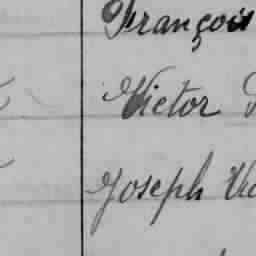 François
Victor
Joseph